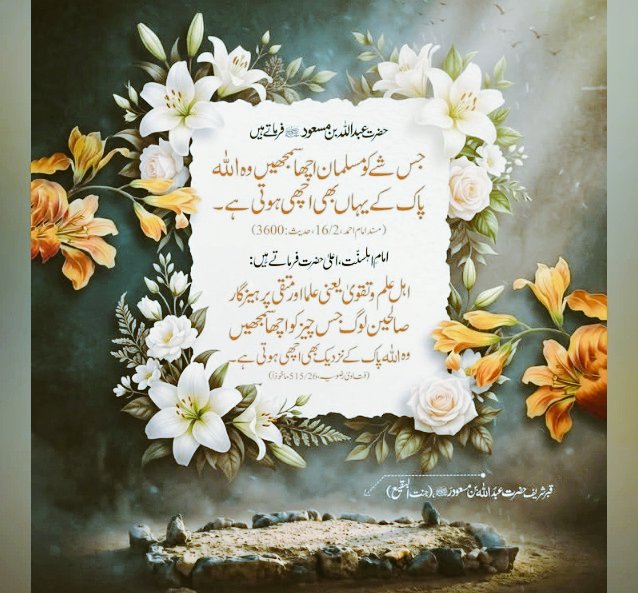 حضرت عبداللہ بن مسعود رضی اللہ عنہ فرماتے ہیں
جس شے کو مسلمان اچھا سمجھیں وہ اللہ
پاک کے یہاں بھی اچھی ہوتی ہے۔
(مسند امام احمد، 16/2، حدیث: 3600)
امامِ اہلسنّت، اعلیٰ حضرت فرماتے ہیں:
اہلِ علم و تقویٰ یعنی علما اور متقی پرہیزگار
صالحین لوگ جس چیز کو اچھا سمجھیں
وہ اللہ پاک کے نزدیک بھی اچھی ہوتی ہے۔
(فتاویٰ رضویہ، 515/26، ماخوذاً)
قبر شریف حضرت عبداللہ بن مسعود رضی اللہ عنہ، (جنت البقیع)